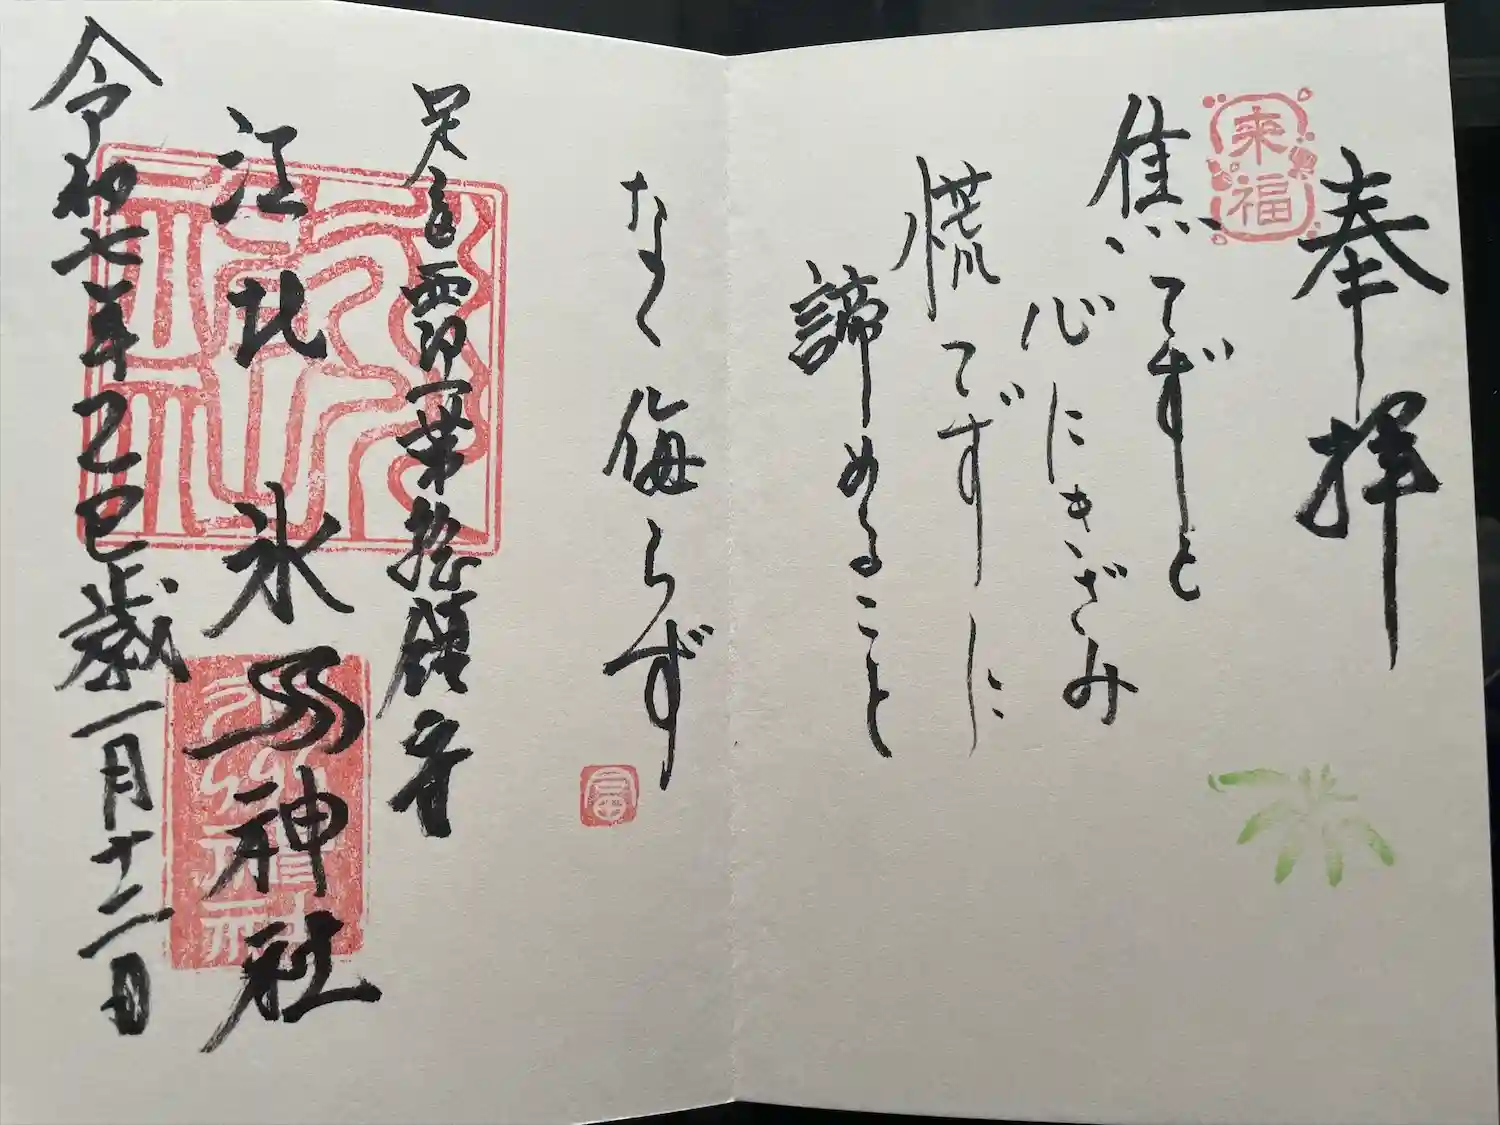 奉拝
来福
焦てずと
心にきざみ
慌てずに
諦めること
なく侮らず
一帯総鎮守
江北氷川神社
令和七年乙巳歳一月十二日